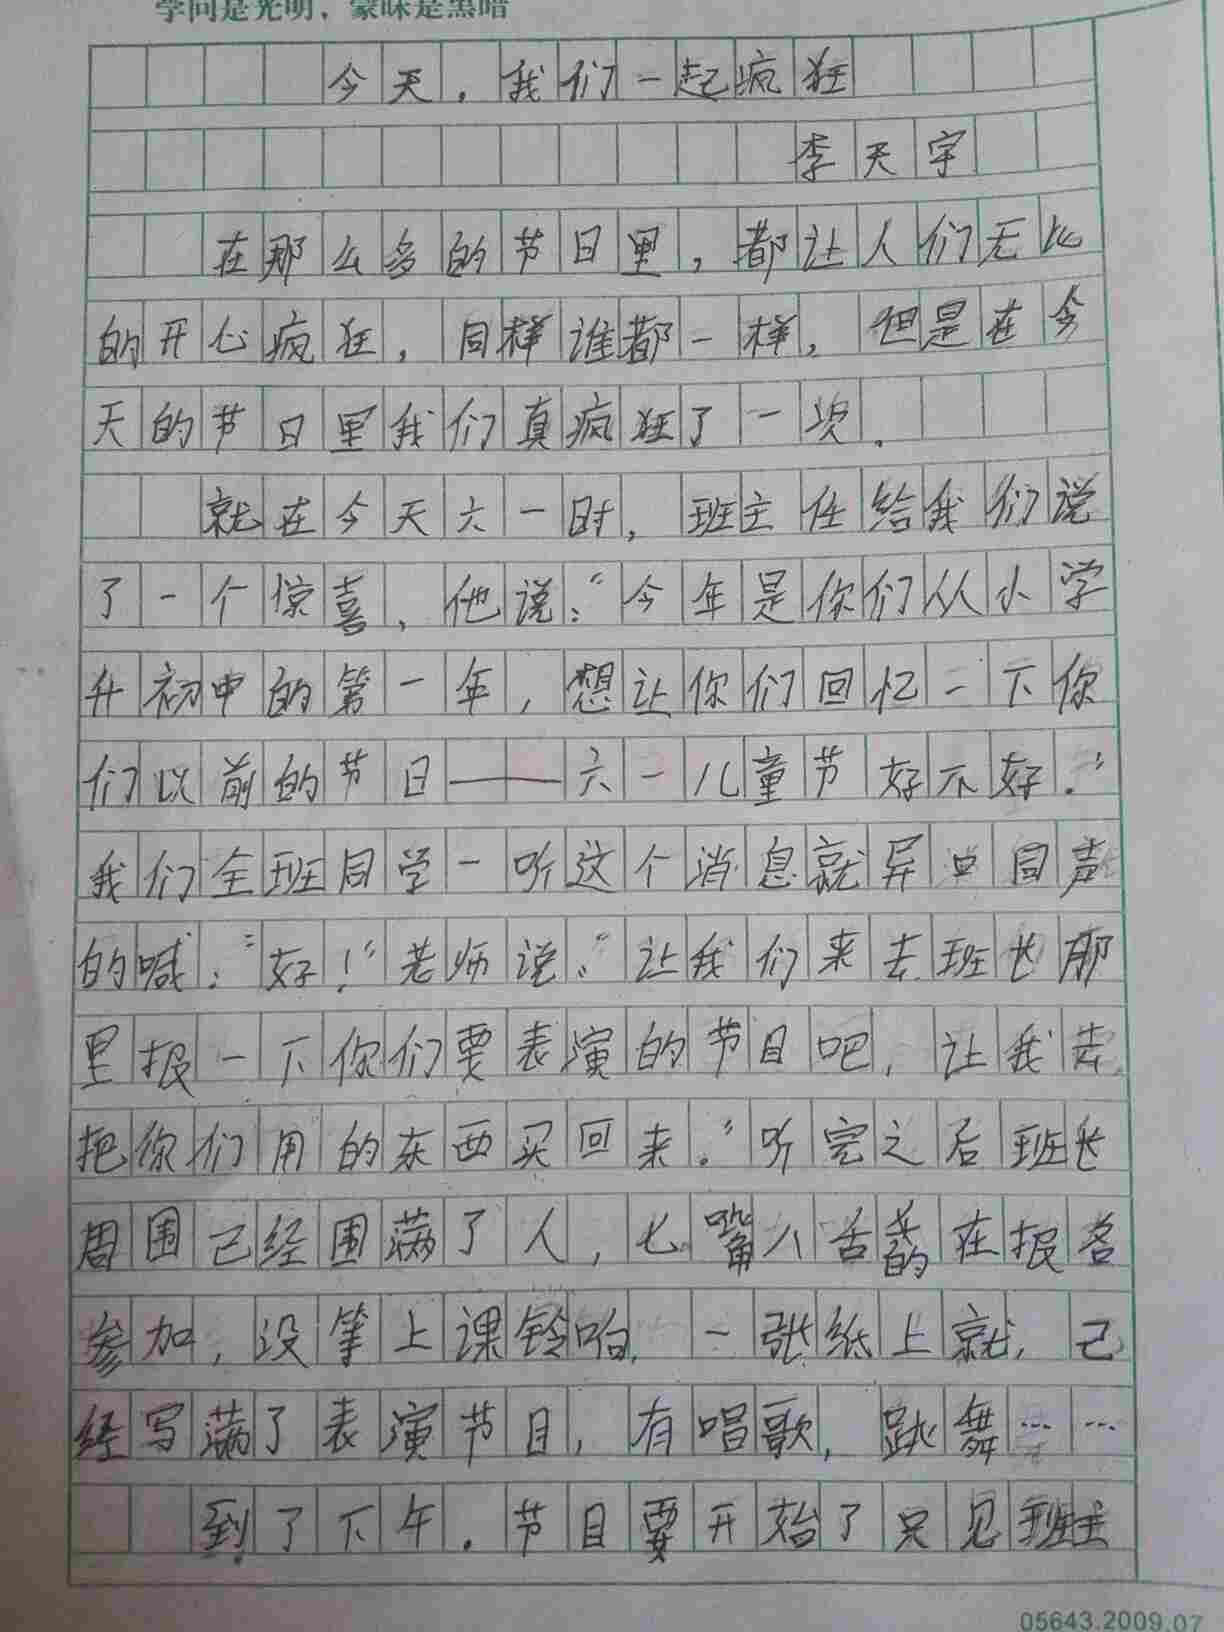 学问是光明，蒙昧是黑暗
今天，我们一起疯狂
李天宇
在那么多的节日里，都让人们无比
的开心疯狂，同样谁都一样，但是在今
天的节日里我们真疯狂了一次.
就在今天六一时，班主任给我们说
了一个惊喜，他说：“今年是你们从小学
升初中的第一年，想让你们回忆一下你
们以前的节日——六一儿童节好不好.”
我们全班同学一听这个消息就异口同声
的喊：“好！”老师说：“让我们来去班长那
里报一下你们要表演的节目吧，让我去
把你们用的东西买回来。”听完之后班长
周围已经围满了人，七嘴八舌的在报名
参加，没等上课铃响，一张纸上就，已
经写满了表演节目，有唱歌，跳舞……
到了下午.节目要开始了只见班主
05643.2009.07